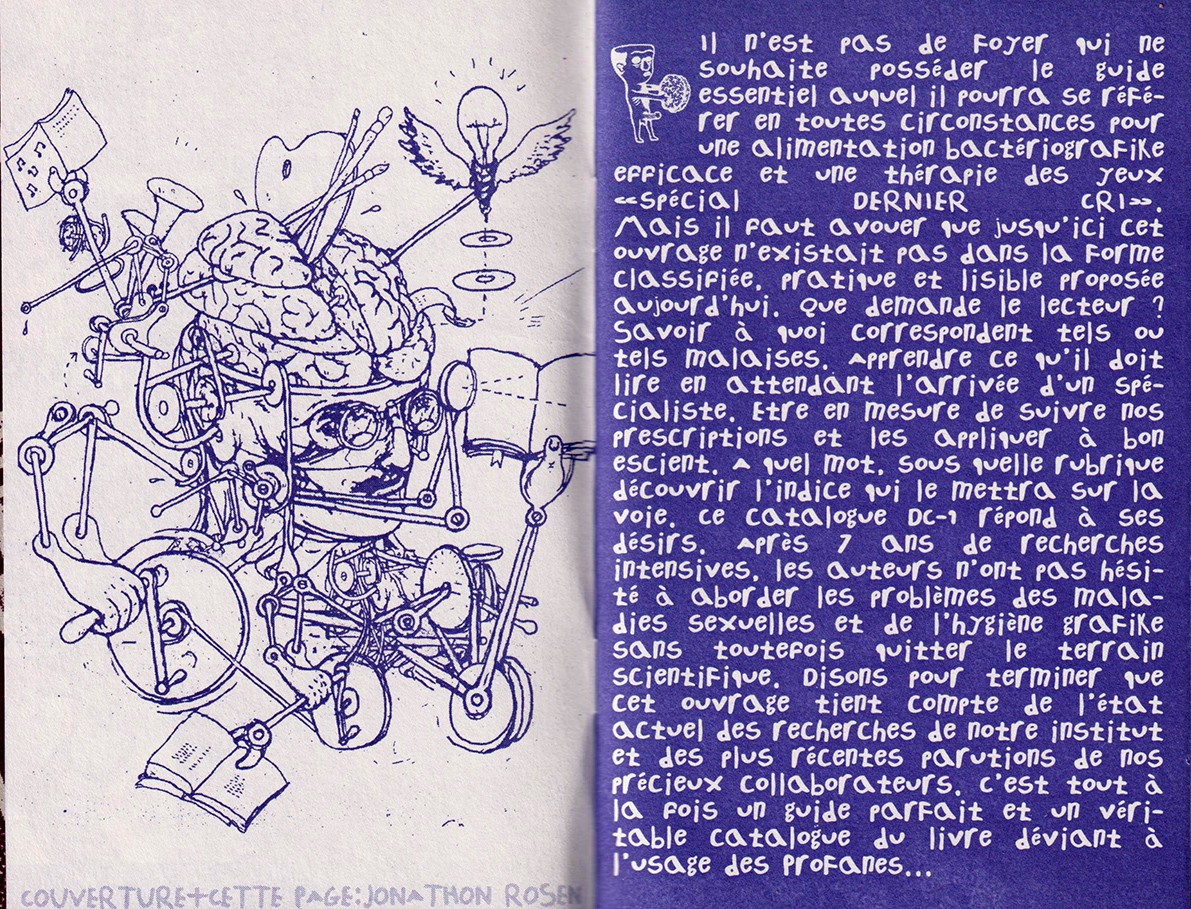 COUVERTURE+CETTE PAGE:JONATHON ROSEN
Il n'est pas de foyer qui ne
souhaite posséder le guide
essentiel auquel il pourra se réfé-
rer en toutes circonstances pour
une alimentation bactériografike
efficace et une thérapie des yeux
«spécial DERNIER CRI».
Mais il faut avouer que jusqu'ici cet
ouvrage n'existait pas dans la forme
classifiée, pratique et lisible proposée
aujourd'hui. Que demande le lecteur ?
Savoir à quoi correspondent tels ou
tels malaises. Apprendre ce qu'il doit
lire en attendant l'arrivée d'un spé-
cialiste. Etre en mesure de suivre nos
prescriptions et les appliquer à bon
escient. A quel mot, sous quelle rubrique
découvrir l'indice qui le mettra sur la
voie. Ce catalogue DC-1 répond à ses
désirs. Après 7 ans de recherches
intensives, les auteurs n'ont pas hési-
té à aborder les problèmes des mala-
dies sexuelles et de l'hygiène grafike
sans toutefois quitter le terrain
scientifique. Disons pour terminer que
cet ouvrage tient compte de l'état
actuel des recherches de notre institut
et des plus récentes parutions de nos
précieux collaborateurs. C'est tout à
la fois un guide parfait et un véri-
table catalogue du livre déviant à
l'usage des profanes...